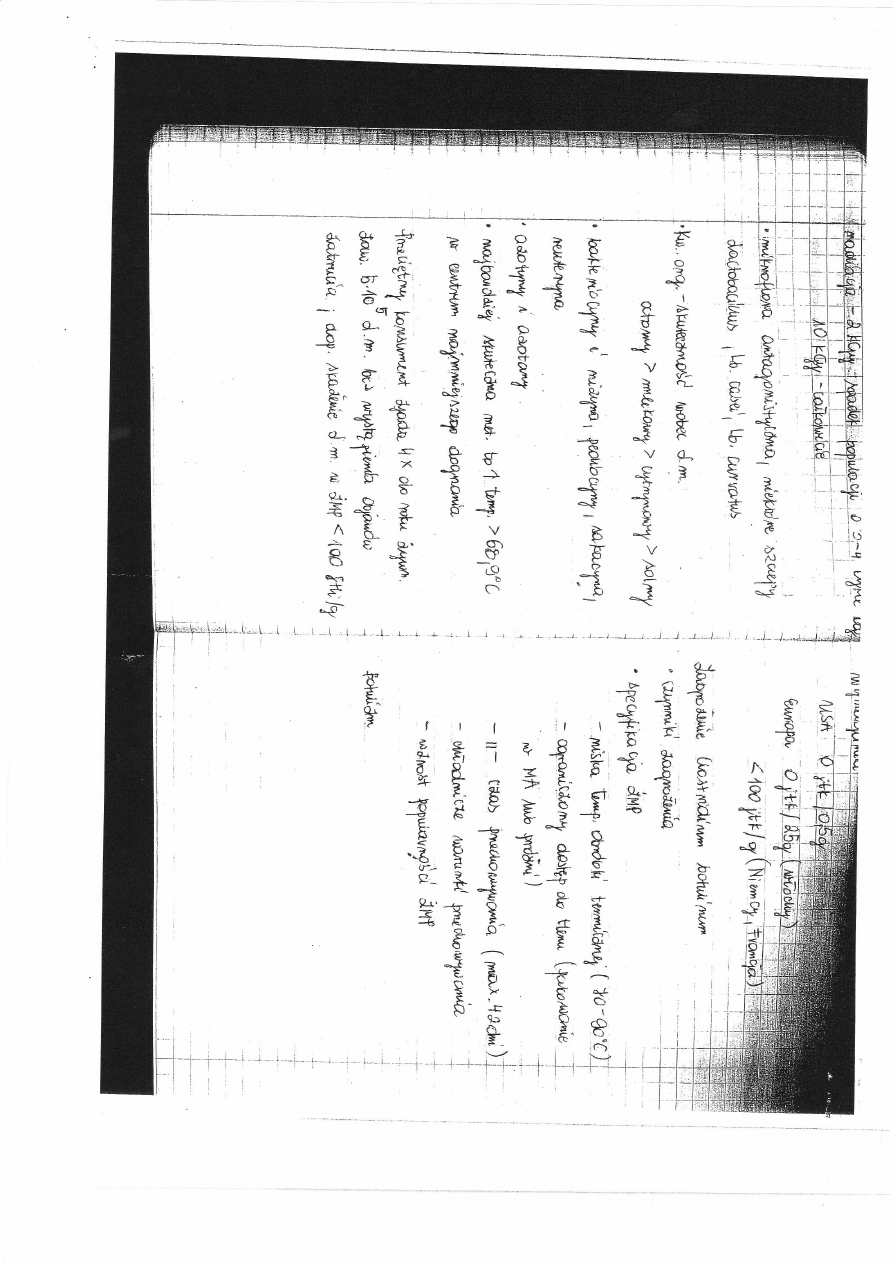 radiacja - 2 kGy - spadek populacji o 3-4 rzędy
10 kGy - całkowicie
• mikroflora antagonistyczna, niektóre szczepy
Lactobacillus, Lb. casei, Lb. curvatus
• Kw. org. - skuteczność wobec L.m.
octowy > mlekowy > cytrynowy > solny
• bakteriocyny i nizyna, pediocyny, sakacyna,
reuteryna
• azotyny i azotany
• najbardziej skuteczna met. to ↑ temp. > 68,9°C
w centrum najzimniejszego ogniska
Przeciętny konsument zjada 4x do roku żywn.
zaw. 5·10⁵ L.m. bez wystąpienia objawów
zatrucia, dop. skażenie L.m. w ŻMP < 100 jtk/g
USA 0 jtk/0,5g
Europa 0 jtk/25g (Włochy)
< 100 jtk/g (Niemcy, Francja)
Zagrożenie Clostridium botulinum
• czynniki zagrożenia
• specyfikacja ŻMP
- niska temp. obróbki termicznej (70-90°C)
- ograniczony dostęp do tlenu (pakowanie
w MA lub próżni)
- 11 - czas przechowywania (max. 42 dni)
- chłodnicze warunki przechowywania
- wzrost popularności ŻMP
botulizm